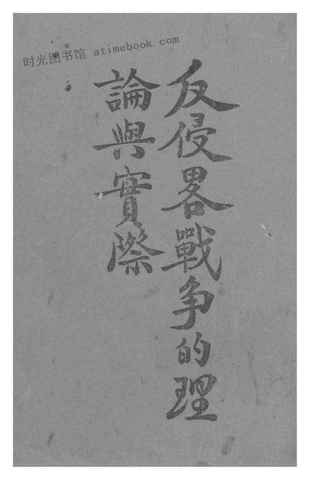 时光图书馆 atimebook.com
反侵畧戰争的理
論與實際